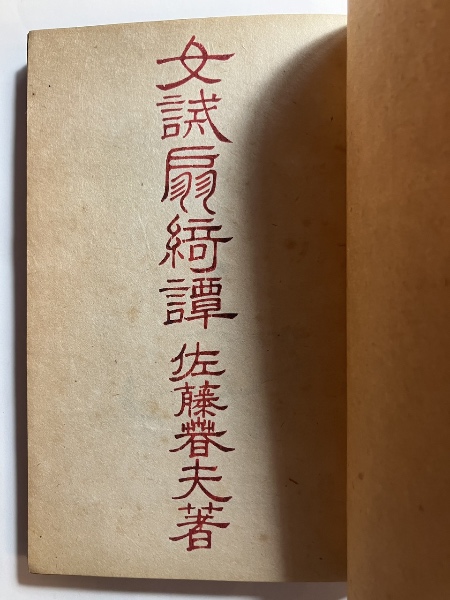 女誡扇綺譚 佐藤春夫著